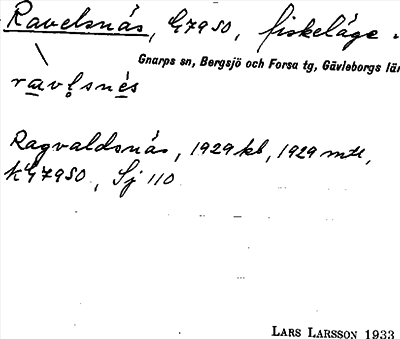 Ravelsnäs, G79SO, fiskeläge.
Gnarps sn, Bergsjö och Forsa tg, Gävleborgs län
ravlsnés
Ragvaldsnäs, 1929 kb, 1929 mtl,
kG79SO, Sj 110
LARS LARSSON 1933